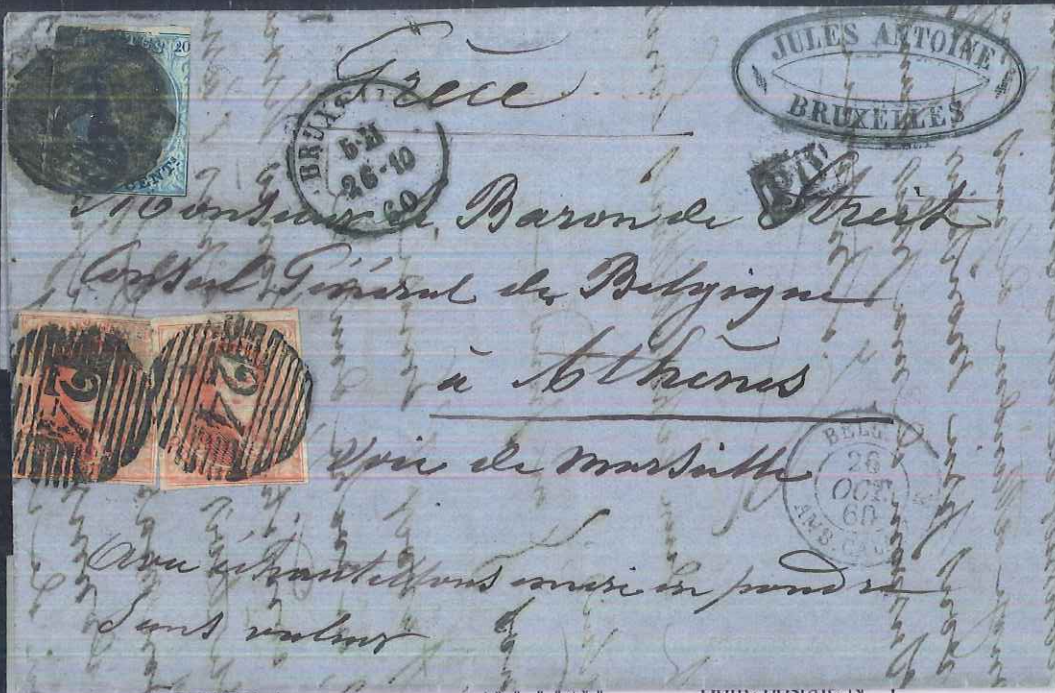 20
CENTS
Grèce
JULES ANTOINE
BRUXELLES
BRUXEL
5·M
26-10
60
Monsieur le Baron de Streit
Consul Général de Belgique
à Athènes
24
24
voie de Marseille
BELG.
26
OCT.
60
AMB. CA
Avec échantillons en poudre
Sans valeur